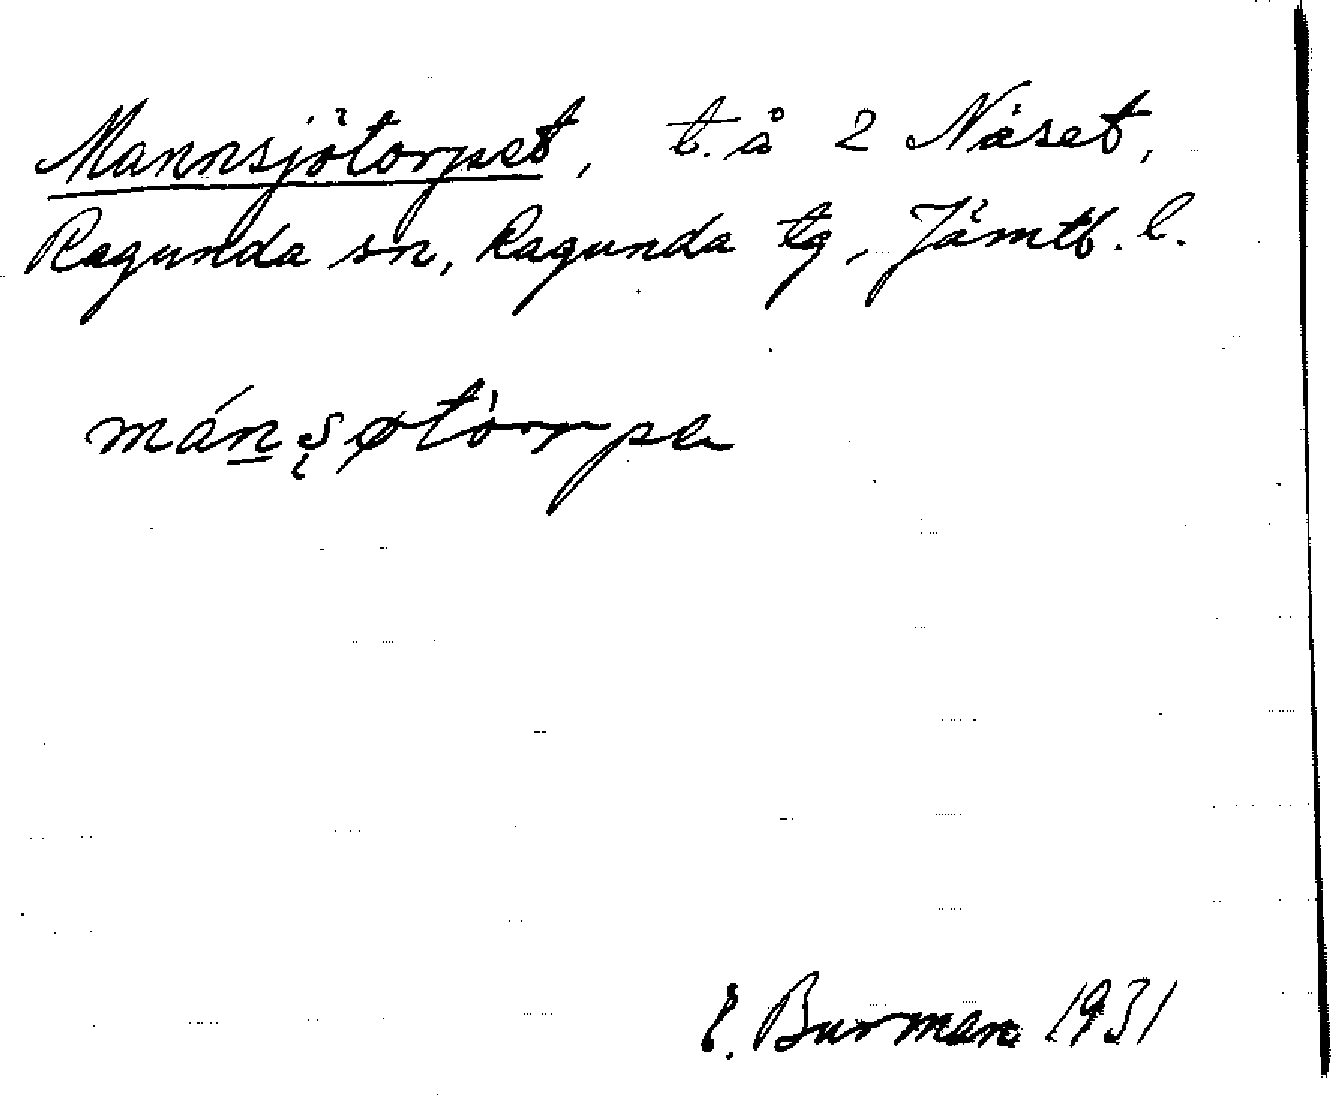 Mannsjötorpet, t. å 2 Näset,
Ragunda sn, Ragunda tg, Jämtl. l.
mánşøtòrpa
E. Burman 1931